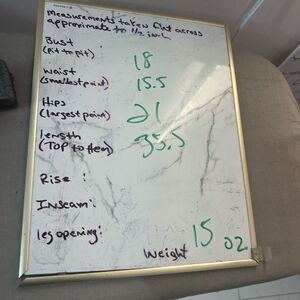 Measurements taken flat across
approximate to 1/2 inch
Bust :
(Pit to Pit) 18
Waist :
(smallest point) 15.5
Hips :
(largest point) 21
Length :
(Top to Hem) 35.5
Rise :
Inseam :
leg opening :
Weight 15 oz